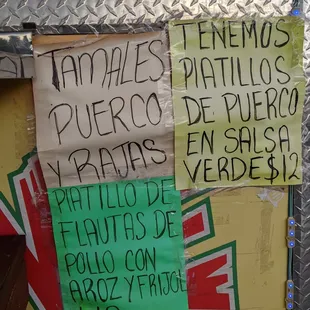 TAMALES
PUERCO
Y RAJAS
TENEMOS
PIATILLOS
DE PUERCO
EN SALSA
VERDE $12
PIATILLO DE
FLAUTAS DE
POLLO CON
AROZ Y FRIJOL